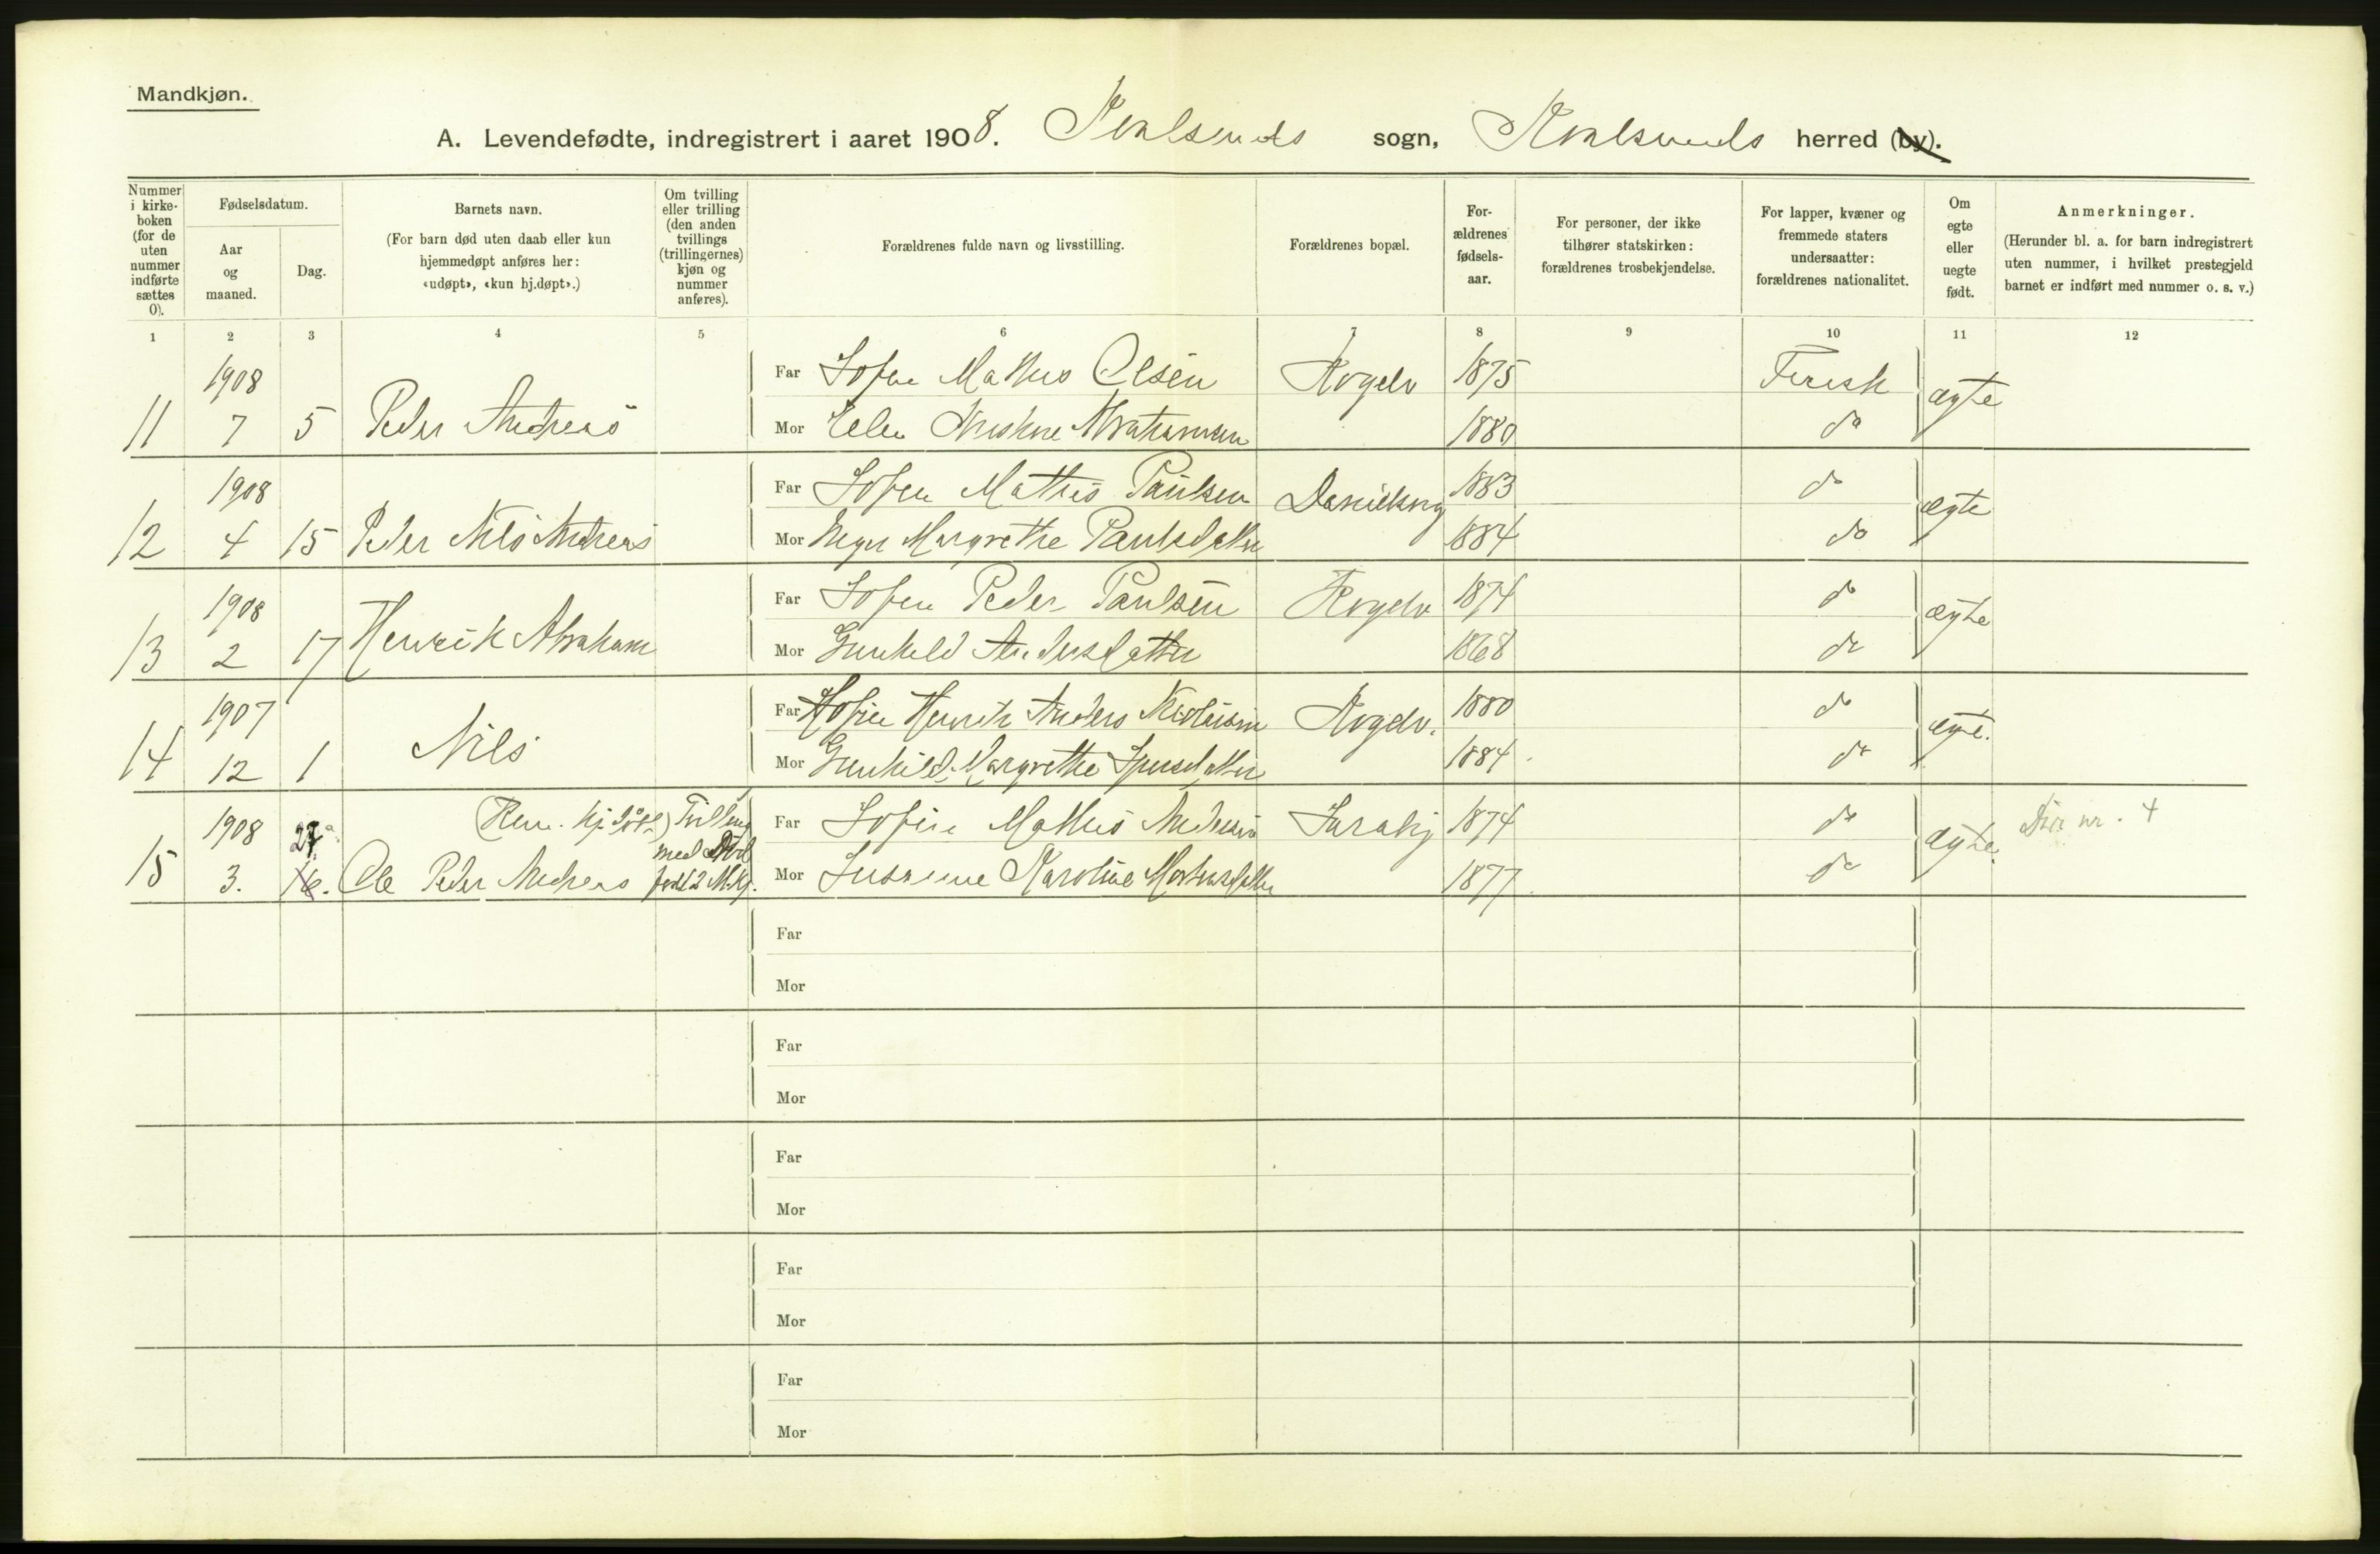 Mandkjøn.
A. Levendefødte, indregistrert i aaret 1908. Kvalsunds sogn, Kvalsunds herred (by).
Nummer i kirke-boken (for de uten nummer indførte sættes 0).
Fødselsdatum.
Aar og maaned.
Dag.
Barnets navn.
(For barn død uten daab eller kun hjemmedøpt anføres her: «udøpt», «kun hj.døpt».)
Om tvilling eller trilling (den anden tvillings (trillingernes) kjøn og nummer anføres).
Forældrenes fulde navn og livsstilling.
Forældrenes bopæl.
For-ældrenes fødsels-aar.
For personer, der ikke tilhører statskirken: forældrenes trosbekjendelse.
For lapper, kvæner og fremmede staters undersaatter: forældrenes nationalitet.
Om egte eller uegte født.
Anmerkninger.
(Herunder bl. a. for barn indregistrert uten nummer, i hvilket prestegjeld barnet er indført med nummer o. s. v.)
1 2 3 4 5 6 7 8 9 10 11 12
1908 Far Sofin Mathis Olsen 1875
11 7 5 Peder Andreas Mor Elen Abrahamsen 1880 do ægte
1908 Far Sofin Mathis Paulsen 1883 do
12 4 15 Peder Nils Andreas Mor Margrethe Paulsdatter 1884 do ægte
1908 Far Sofin Peder Paulsen 1874 do
13 2 17 Henrik Abraham Mor Gunhild Andersdatter 1868 do ægte
1907 Far Sofin Henrik Anders 1880 do
14 12 1 Nils Mor Gunhild Margrethe 1884 do ægte.
1908 27 hj. døbt) Tvilling Far Sofin Mathis Andersen 1874 do nr. 4
15 3. 16. Ole Peder Andreas med født 2 M.Kj. Mor Susanne Karoline 1877 do ægte.
Far
Mor
Far
Mor
Far
Mor
Far
Mor
Far
Mor